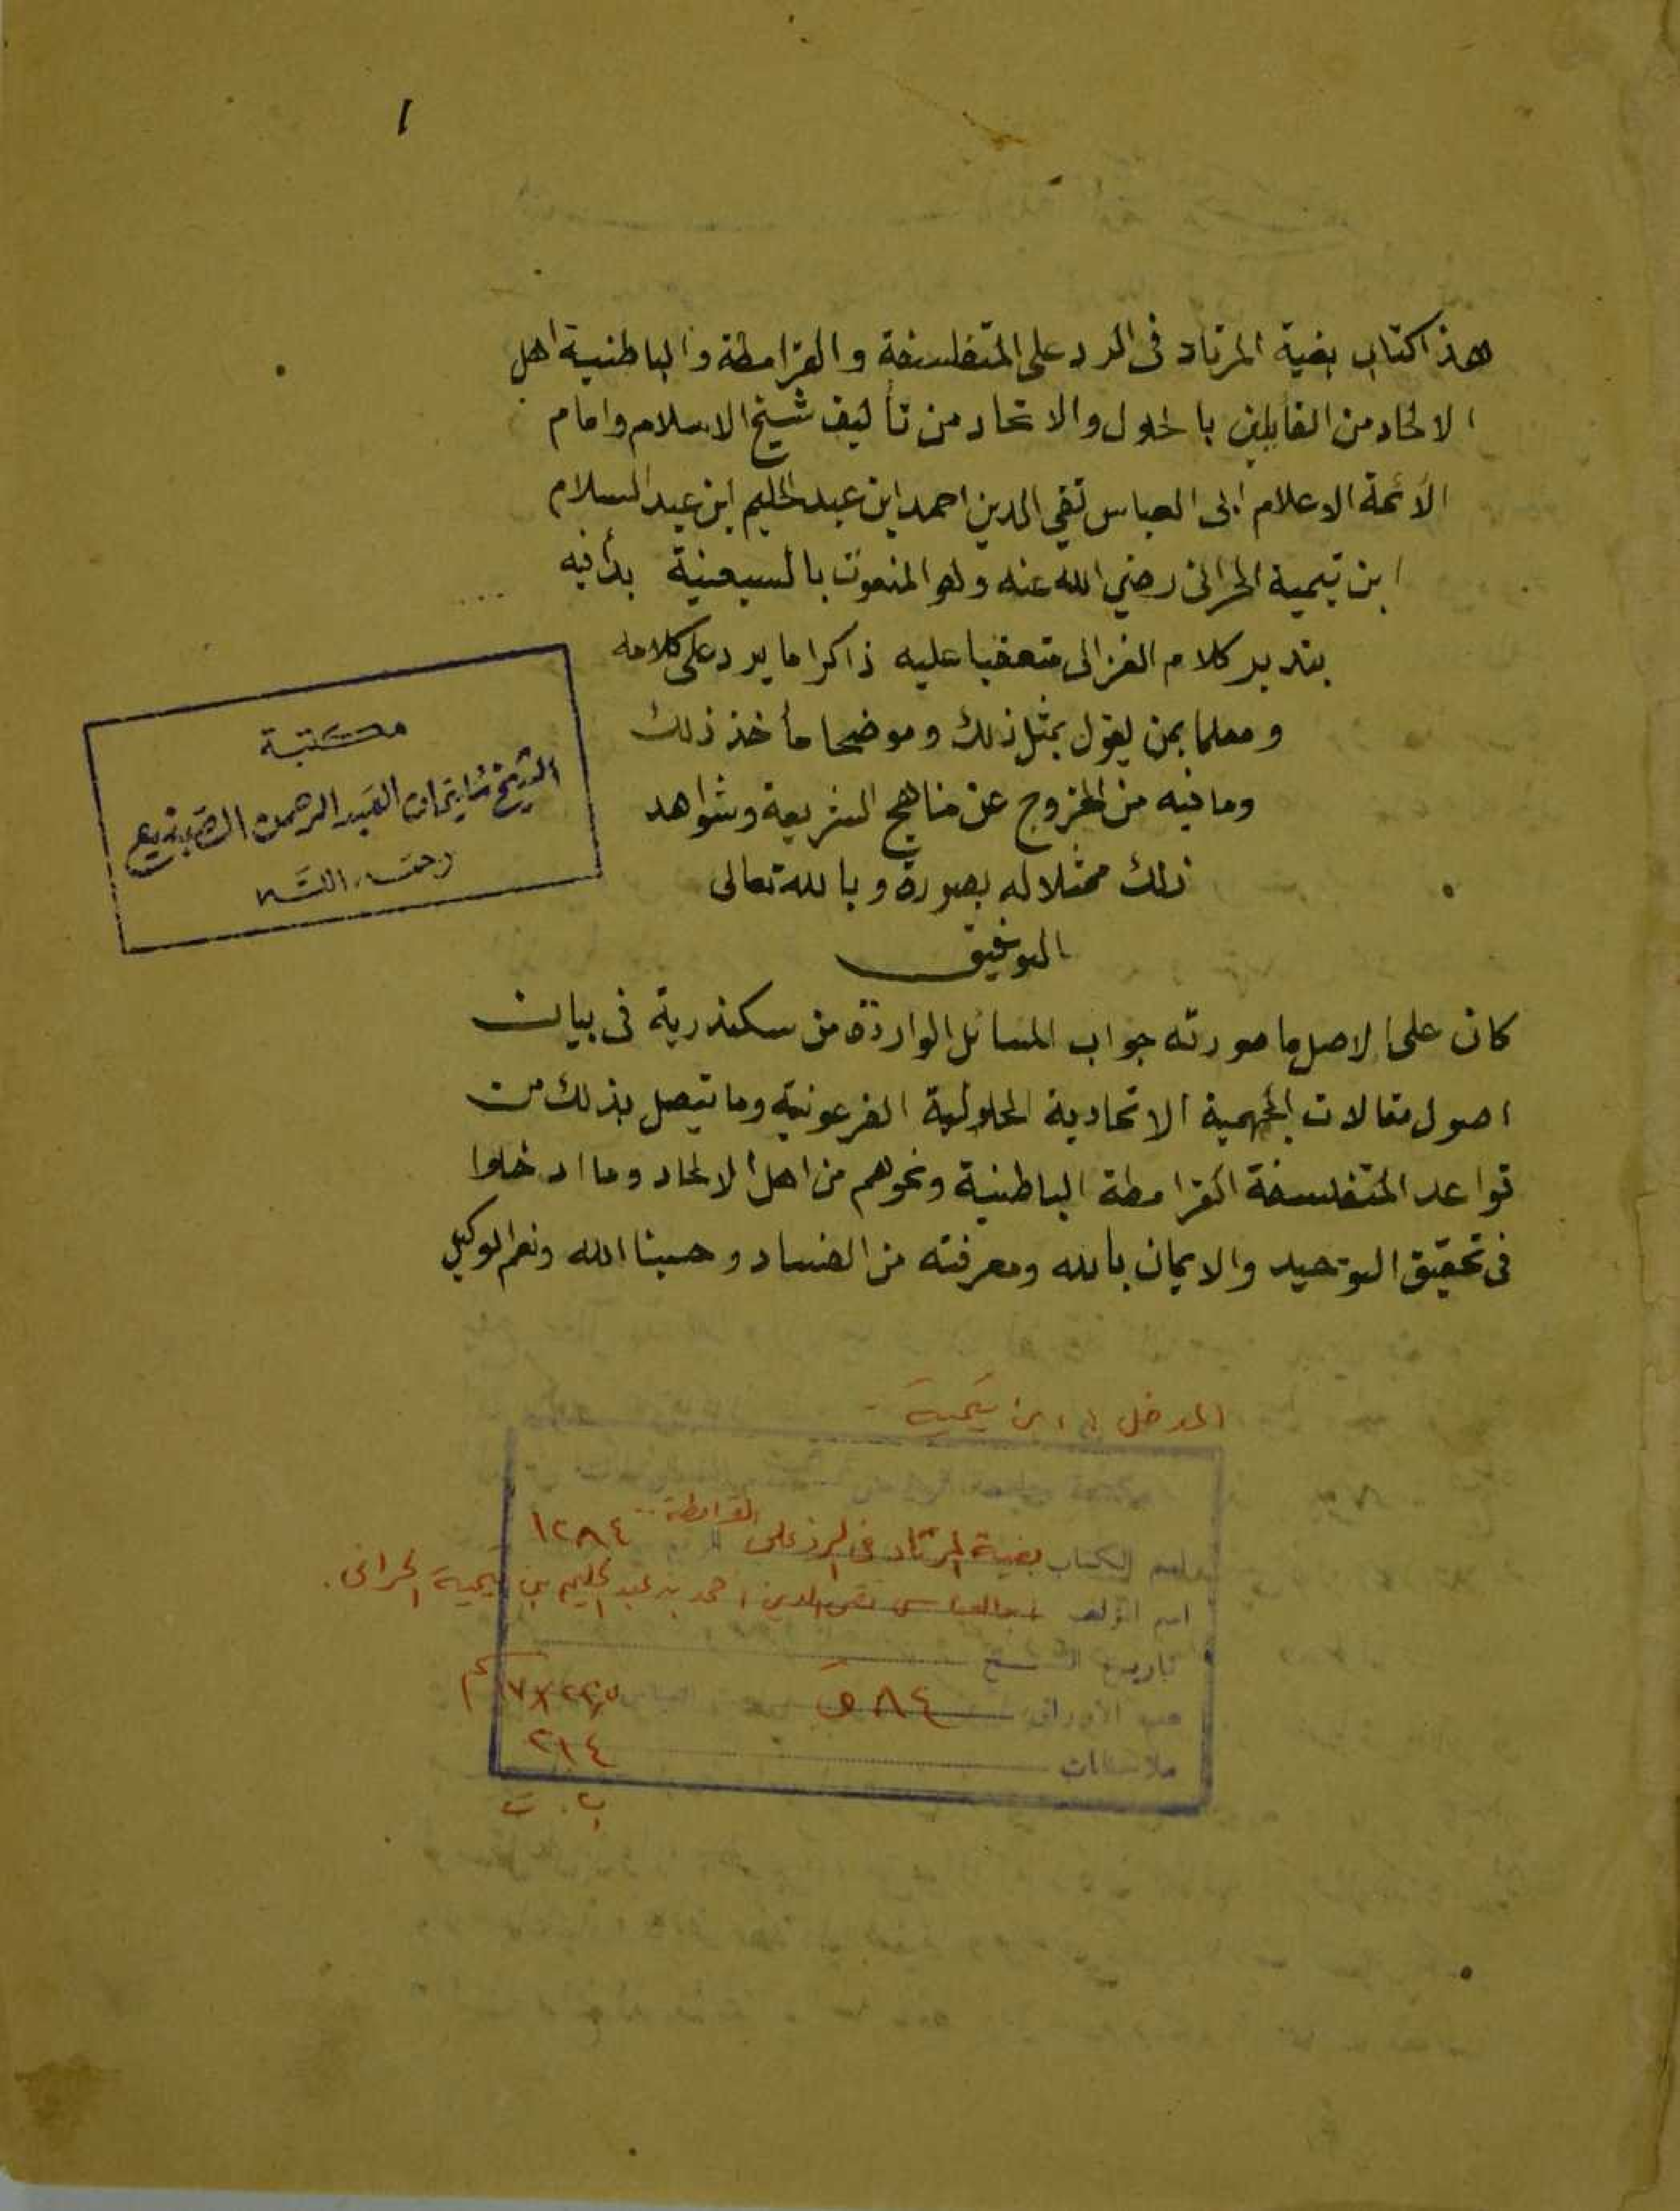 ١
هذا كتاب بغية المرتاد فى الرد على المتفلسفة والقرامطة والباطنية اهل
الالحاد من القايلين بالحلول والاتحاد من تأليف شيخ الاسلام وامام
الأئمة الاعلام ابى العباس تقي الدين احمد ابن عبد الحليم ابن عبد السلام
ابن تيمية الحرانى رضي الله عنه وهو المنعوت بالسبعينية بدأ فيه
بتدبر كلام الغزالى متعقبا عليه ذاكرا ما يرد على كلامه
ومعلما بمن يقول بمثل ذلك وموضحا مأخذ ذلك
وما فيه من الخروج عن مناهج الشريعة وشواهد
ذلك ممثلا له بصورة وبالله تعالى
التوفيق
مكتبة
الشيخ سليمان العبد الرحمن الصنيع
رحمه الله
كان على الاصل ما صورته جواب المسائل الواردة من سكندرية فى بيان
اصول مقالات الجهمية الاتحادية الحلولية الفرعونية وما يتصل بذلك من
قواعد المتفلسفة القرامطة الباطنية ونحوهم من اهل الالحاد وما ادخلوا
فى تحقيق التوحيد والايمان بالله ومعرفته من الفساد وحسبنا الله ونعم الوكيل
ابن تيمية
اسم الكتاب بغية المرتاد فى الرد على القرامطة .. ١٢٨٤
اسم المؤلف ابو العباس تقى الدين احمد بن عبد الحليم بن تيمية الحرانى .
تاريخ النسخ
عدد الأوراق ٨٤ ق
ملاحظات ٢١٤